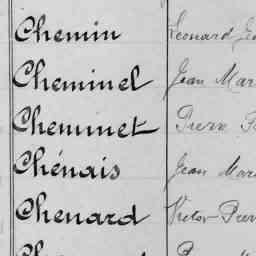 Chemin Leonard
Cheminel Jean Mar
Cheminet Pierre
Chénais Jean Mari
Chenard Victor Pierr